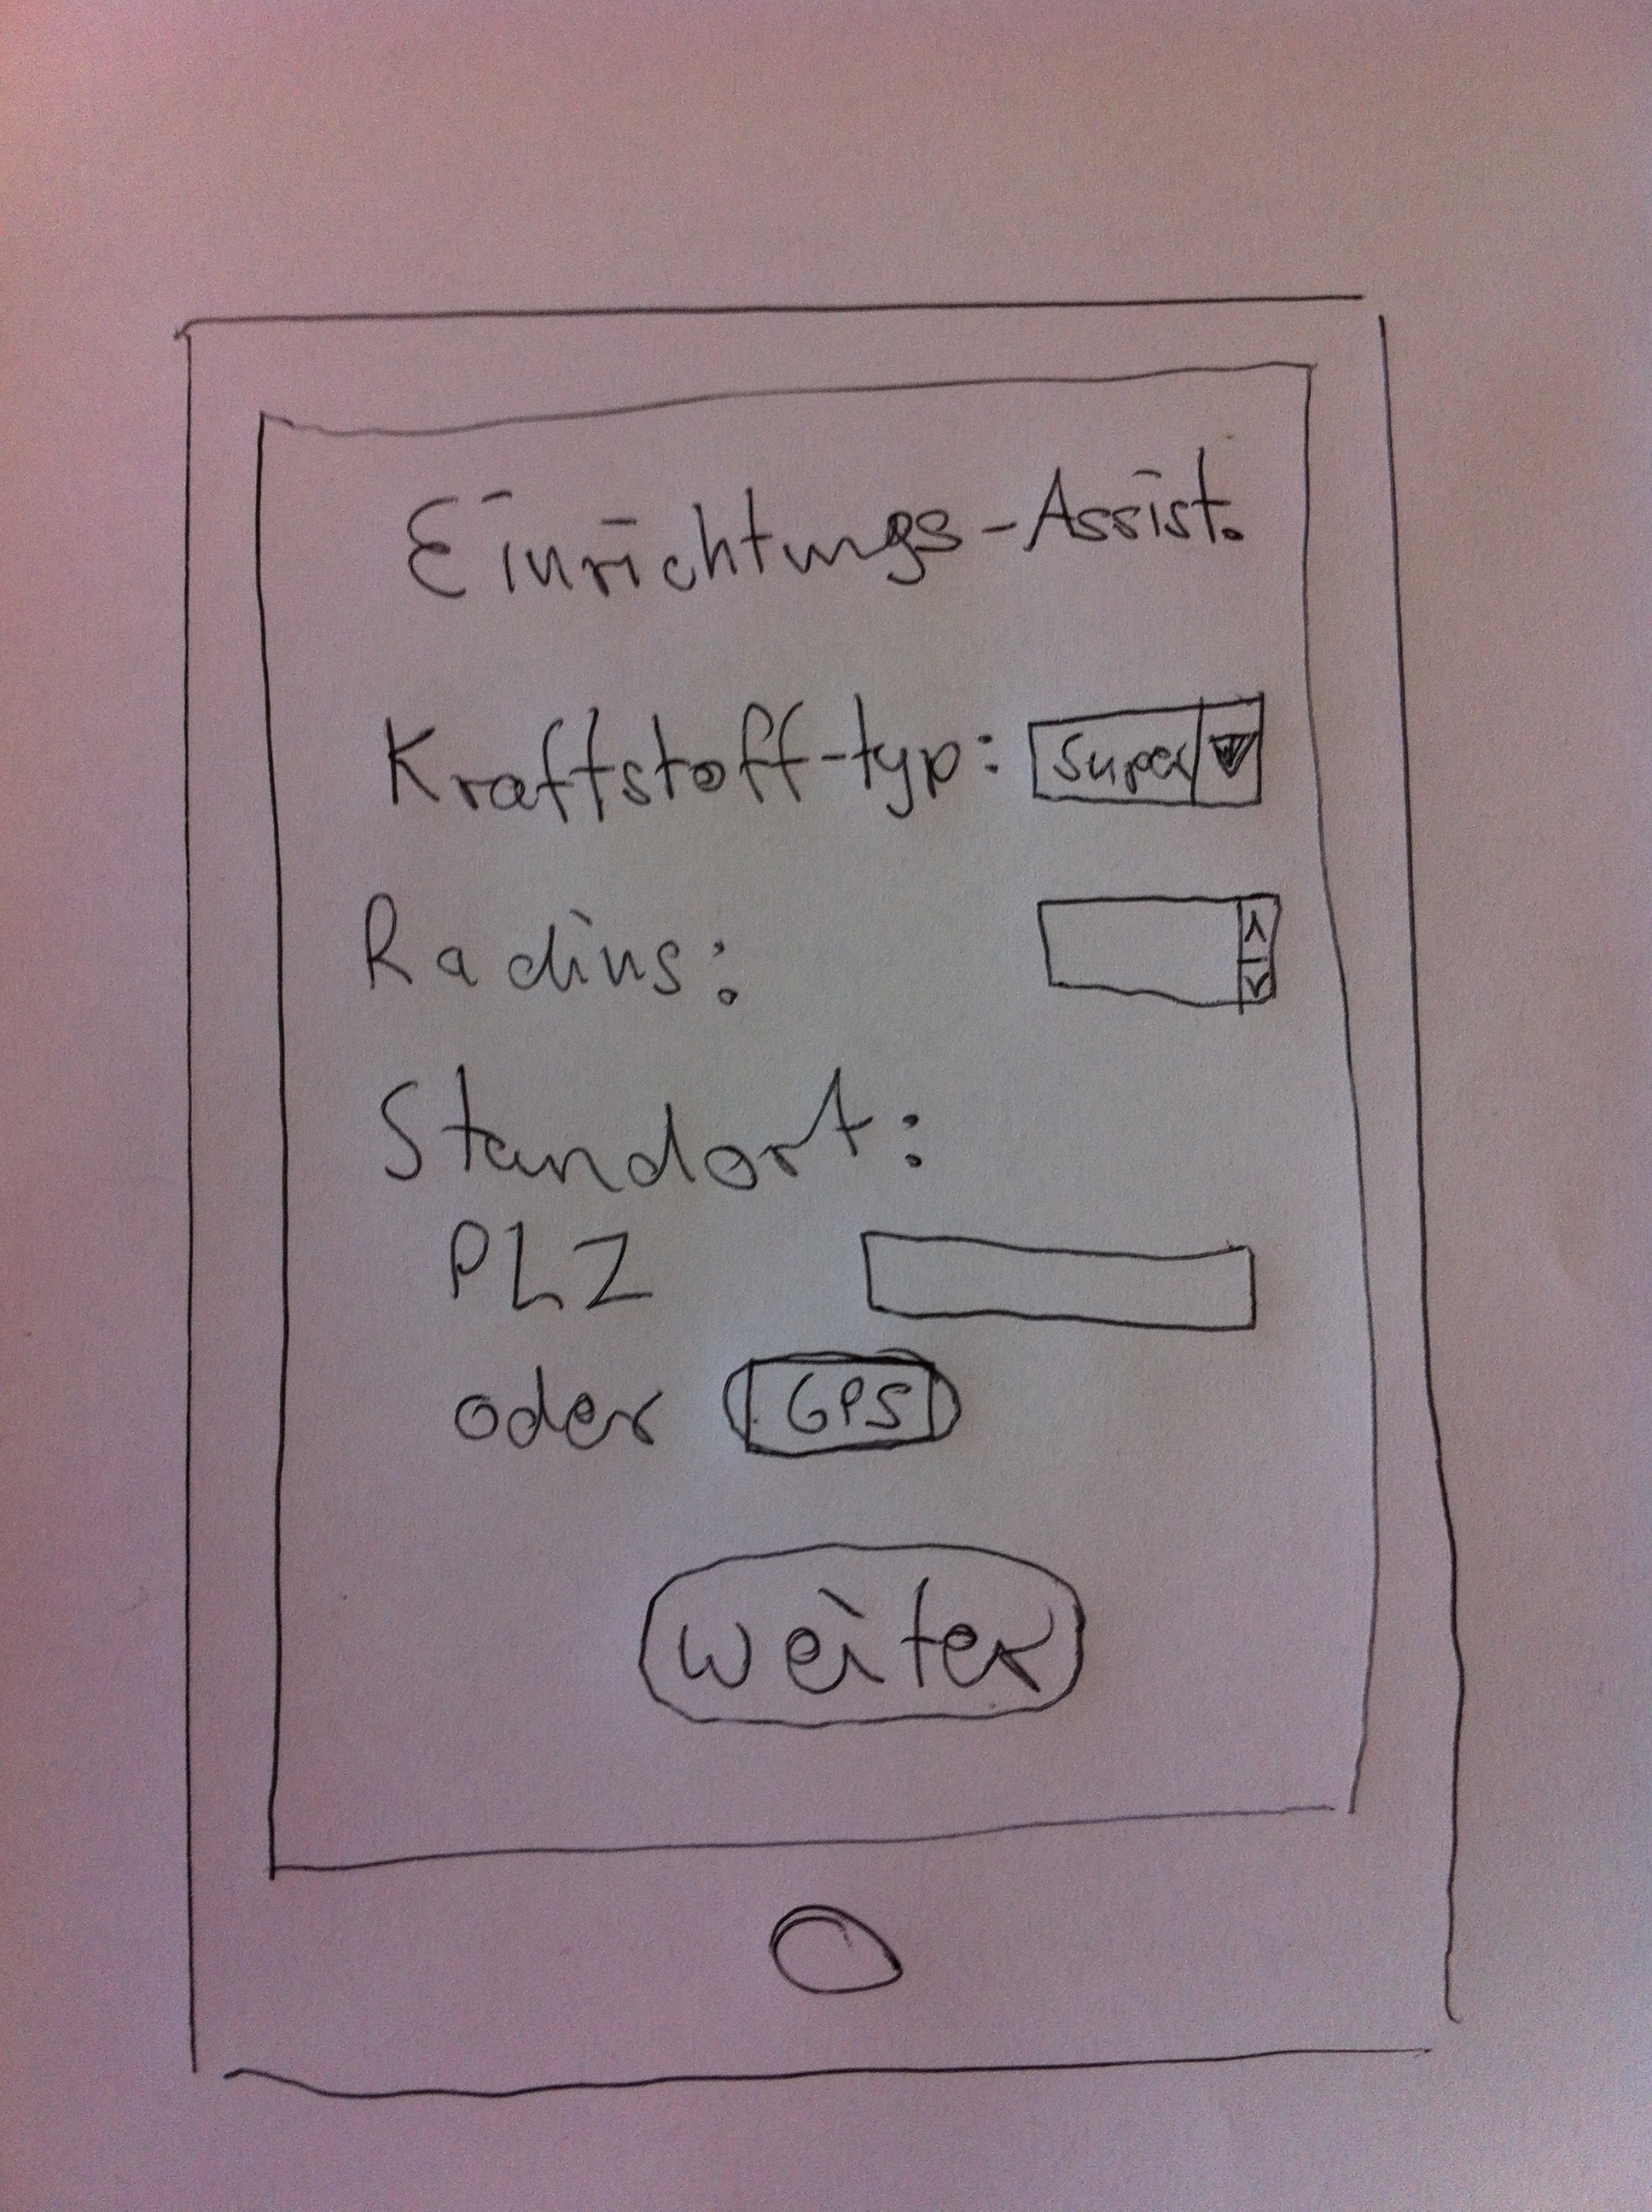 Einrichtungs-Assist.
Kraftstoff-typ: Super
Radius:
Standort:
PLZ
oder GPS
weiter